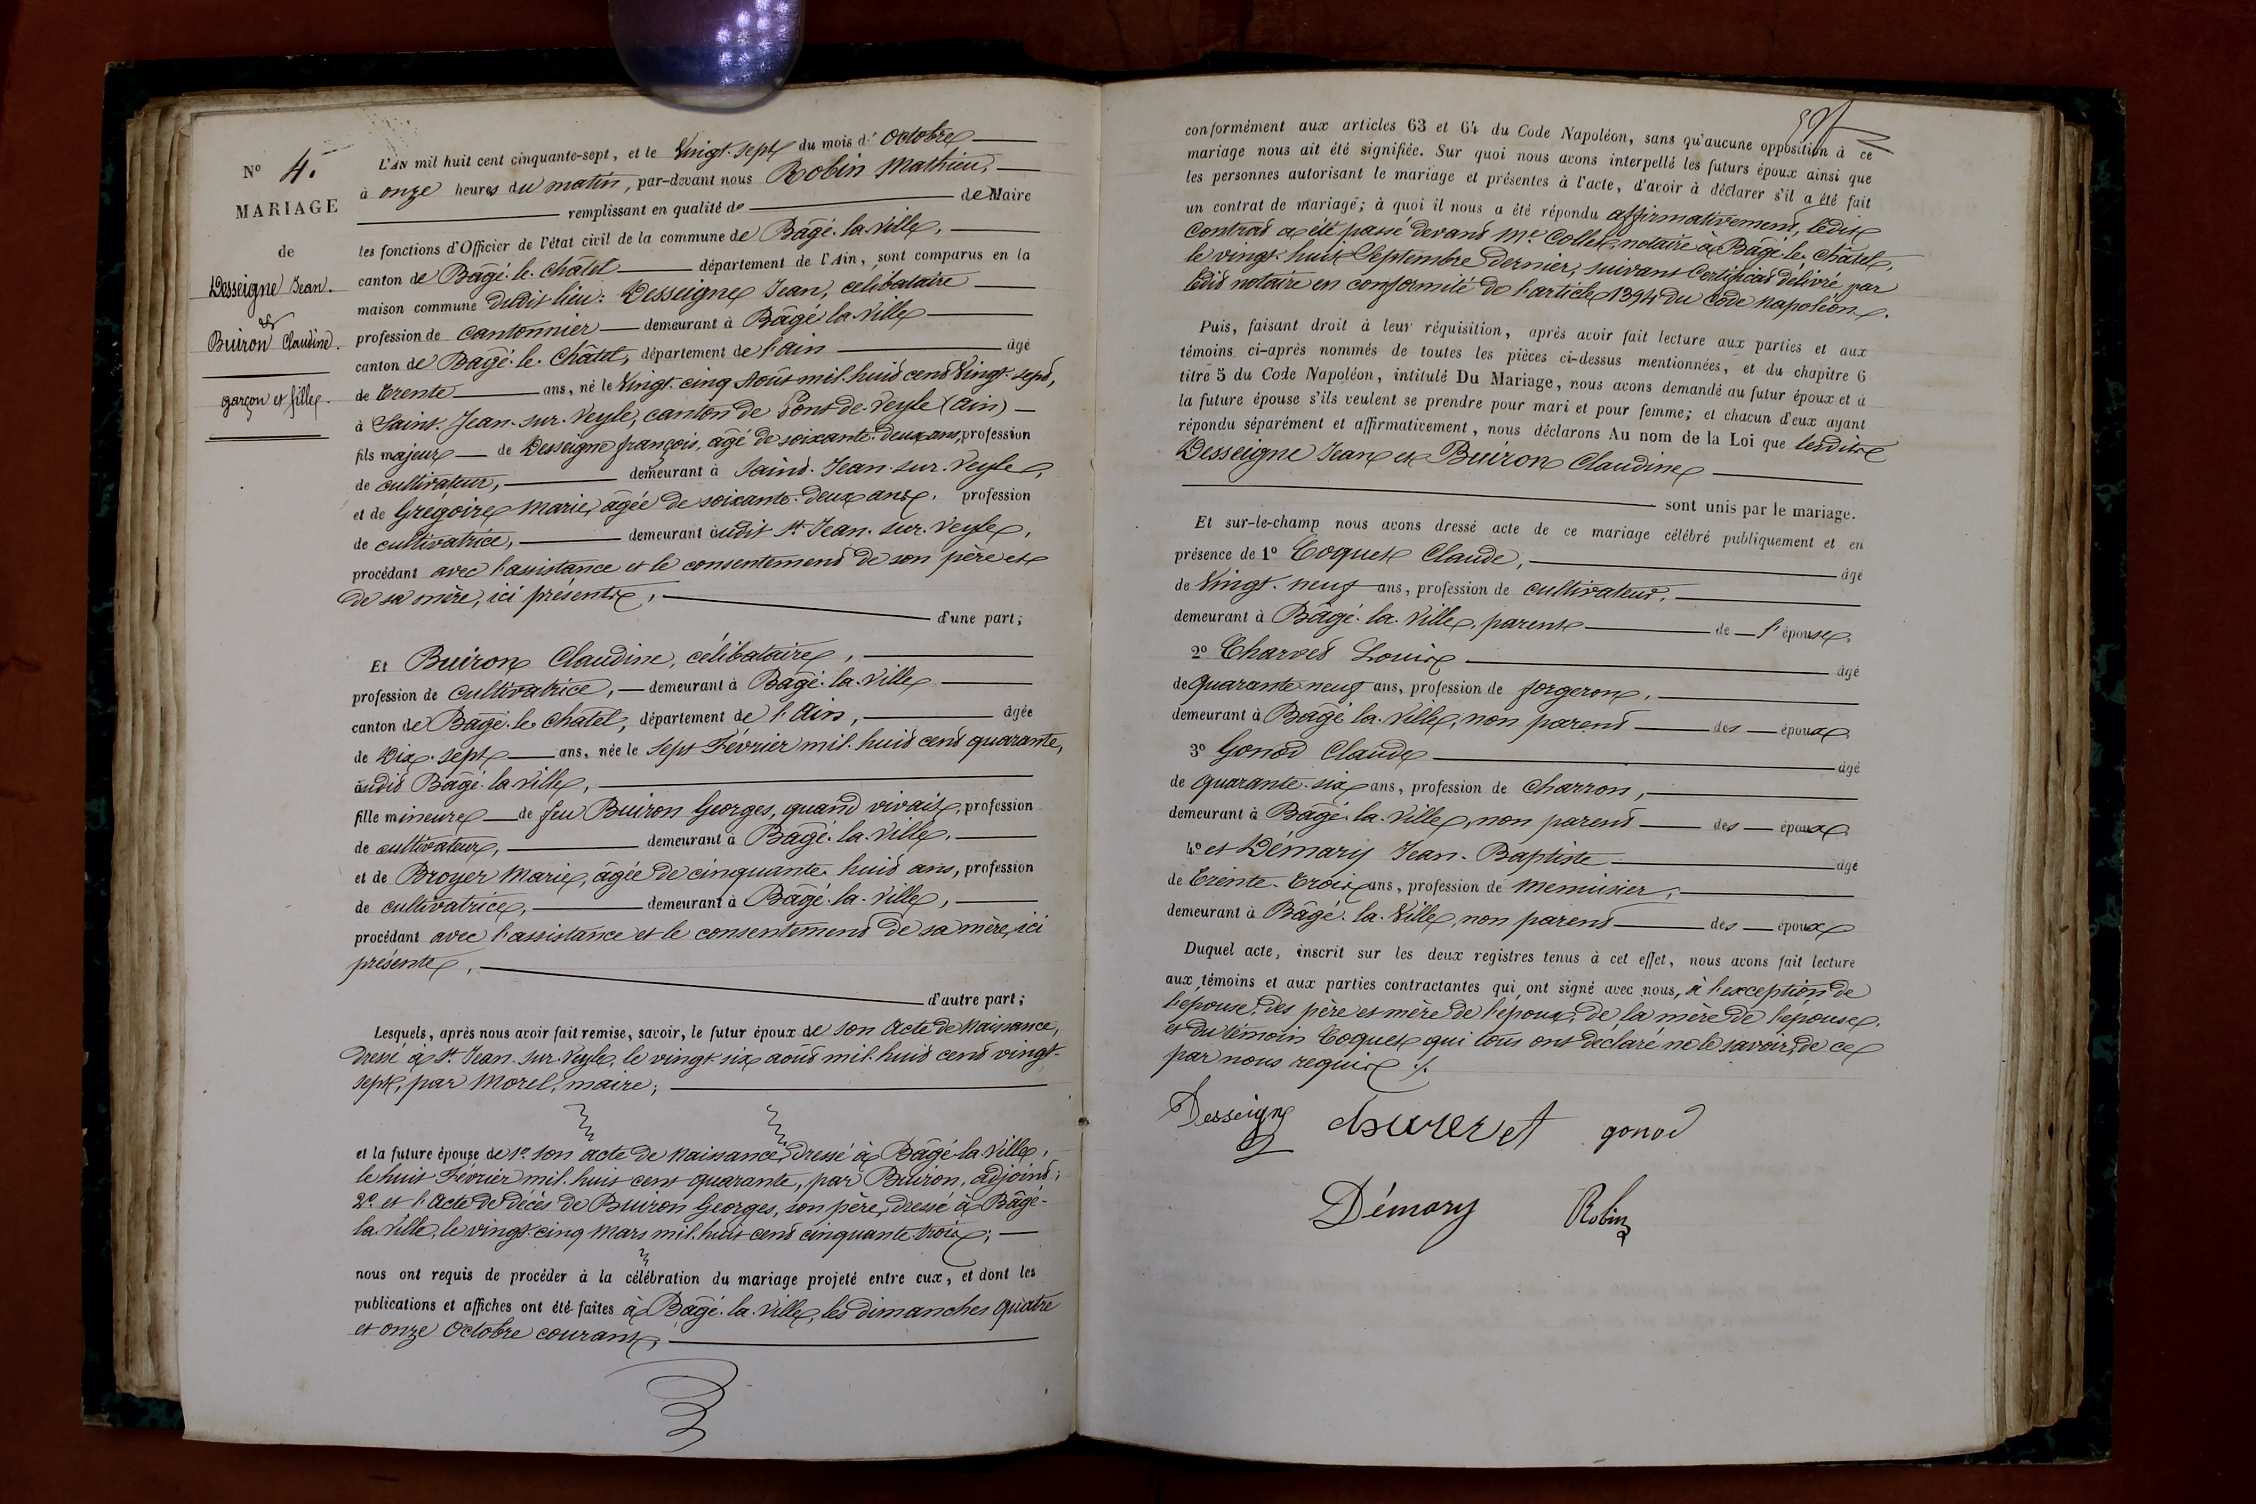 N° 4.
MARIAGE
de
Desseigne Jean.
et
Buiron Claudine.
garçon et fille.
L'AN mil huit cent cinquante-sept, et le Vingt-sept du mois d'Octobre
à onze heures du matin, par-devant nous Robin Mathieu,
remplissant en qualité de de Maire
les fonctions d'Officier de l'état civil de la commune de Bâgé-la-Ville,
canton de Bâgé-le-Châtel département de l'Ain, sont comparus en la
maison commune dudit lieu: Desseigne Jean, célibataire
profession de cantonnier demeurant à Bâgé la Ville
canton de Bâgé-le-Châtel, département de l'Ain âgé
de trente ans, né le Vingt-cinq Août mil-huit cent Vingt-sept,
à Saint-Jean-sur-Veyle, canton de Pont-de-Veyle (Ain)
fils majeur de Desseigne françois, âgé de soixante-deux ans, profession
de cultivateur, demeurant à Saint-Jean-sur-Veyle,
et de Grégoire Marie, âgée de soixante-deux ans, profession
de cultivatrice, demeurant audit St Jean-sur-Veyle,
procédant avec l'assistance et le consentement de son père et
de sa mère, ici présents, d'une part;
Et Buiron Claudine, célibataire,
profession de cultivatrice, demeurant à Bâgé-la-Ville
canton de Bâgé-le-Châtel, département de l'Ain, âgée
de Dix-sept ans, née le sept Février mil-huit cent quarante,
audit Bâgé-la-Ville,
fille mineure de feu Buiron Georges, quand vivait, profession
de cultivateur, demeurant à Bâgé-la-Ville,
et de Broyer Marie, âgée de cinquante-huit ans, profession
de cultivatrice, demeurant à Bâgé-la-Ville,
procédant avec l'assistance et le consentement de sa mère, ici
présente, d'autre part;
Lesquels, après nous avoir fait remise, savoir, le futur époux de son Acte de Naissance,
dressé à St Jean-sur-Veyle, le vingt-six août mil-huit cent vingt-
sept, par Morel, maire;
et la future épouse de 1° son acte de Naissance, dressé à Bâgé-la-Ville,
le huit Février mil-huit cent quarante, par Buiron, adjoint;
2° et l'Acte de Décès de Buiron Georges, son père, dressé à Bâgé-
la-Ville, le vingt-cinq Mars mil-huit cent cinquante-trois;
nous ont requis de procéder à la célébration du mariage projeté entre eux, et dont les
publications et affiches ont été faites à Bâgé-la-Ville, les dimanches quatre
et onze Octobre courant,
conformément aux articles 63 et 64 du Code Napoléon, sans qu'aucune opposition à ce
mariage nous ait été signifiée. Sur quoi nous avons interpellé les futurs époux ainsi que
les personnes autorisant le mariage et présentes à l'acte, d'avoir à déclarer s'il a été fait
un contrat de mariage; à quoi il nous a été répondu affirmativement, ledit
Contrat a été passé devant Me Collet, notaire à Bâgé-le-Châtel,
le vingt-huit Septembre dernier, suivant Certificat délivré par
ledit notaire en conformité de l'article 1394 du Code Napoléon.
Puis, faisant droit à leur réquisition, après avoir fait lecture aux parties et aux
témoins ci-après nommés de toutes les pièces ci-dessus mentionnées, et du chapitre 6
titre 5 du Code Napoléon, intitulé Du Mariage, nous avons demandé au futur époux et à
la future épouse s'ils veulent se prendre pour mari et pour femme; et chacun d'eux ayant
répondu séparément et affirmativement, nous déclarons Au nom de la Loi que lesdits
Desseigne Jean et Buiron Claudine
sont unis par le mariage.
Et sur-le-champ nous avons dressé acte de ce mariage célébré publiquement et en
présence de 1° Coquet Claude, âgé
de Vingt-neuf ans, profession de cultivateur,
demeurant à Bâgé-la-Ville, parent de l'épouse,
2° Charvet Louis âgé
de quarante-neuf ans, profession de forgeron,
demeurant à Bâgé la-Ville, non parent des époux,
3° Gonod Claude âgé
de quarante-six ans, profession de Charron,
demeurant à Bâgé-la-Ville, non parent des époux,
4° et Démary Jean-Baptiste âgé
de trente-trois ans, profession de menuisier,
demeurant à Bâgé-la-Ville, non parent des époux
Duquel acte, inscrit sur les deux registres tenus à cet effet, nous avons fait lecture
aux témoins et aux parties contractantes qui ont signé avec nous, à l'exception de
l'épouse, des père et mère de l'époux, de la mère de l'épouse,
et du témoin Coquet qui tous ont déclaré ne le savoir, de ce
par nous requis ./.
Desseigne gonod
Démary Robin